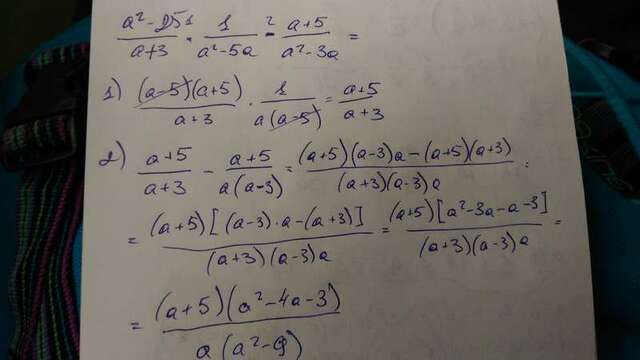 a²-25/a+3 ·¹ 1/a²-5a -² a+5/a²-3a =
1) (a-5)(a+5)/a+3 · 1/a(a-5) = a+5/a+3
2) a+5/a+3 - a+5/a(a-3) = (a+5)(a-3)a-(a+5)(a+3)/(a+3)(a-3)a =
= (a+5)[(a-3)·a-(a+3)]/(a+3)(a-3)a = (a+5)[a²-3a-a-3]/(a+3)(a-3)a =
= (a+5)(a²-4a-3)/a(a²-9)